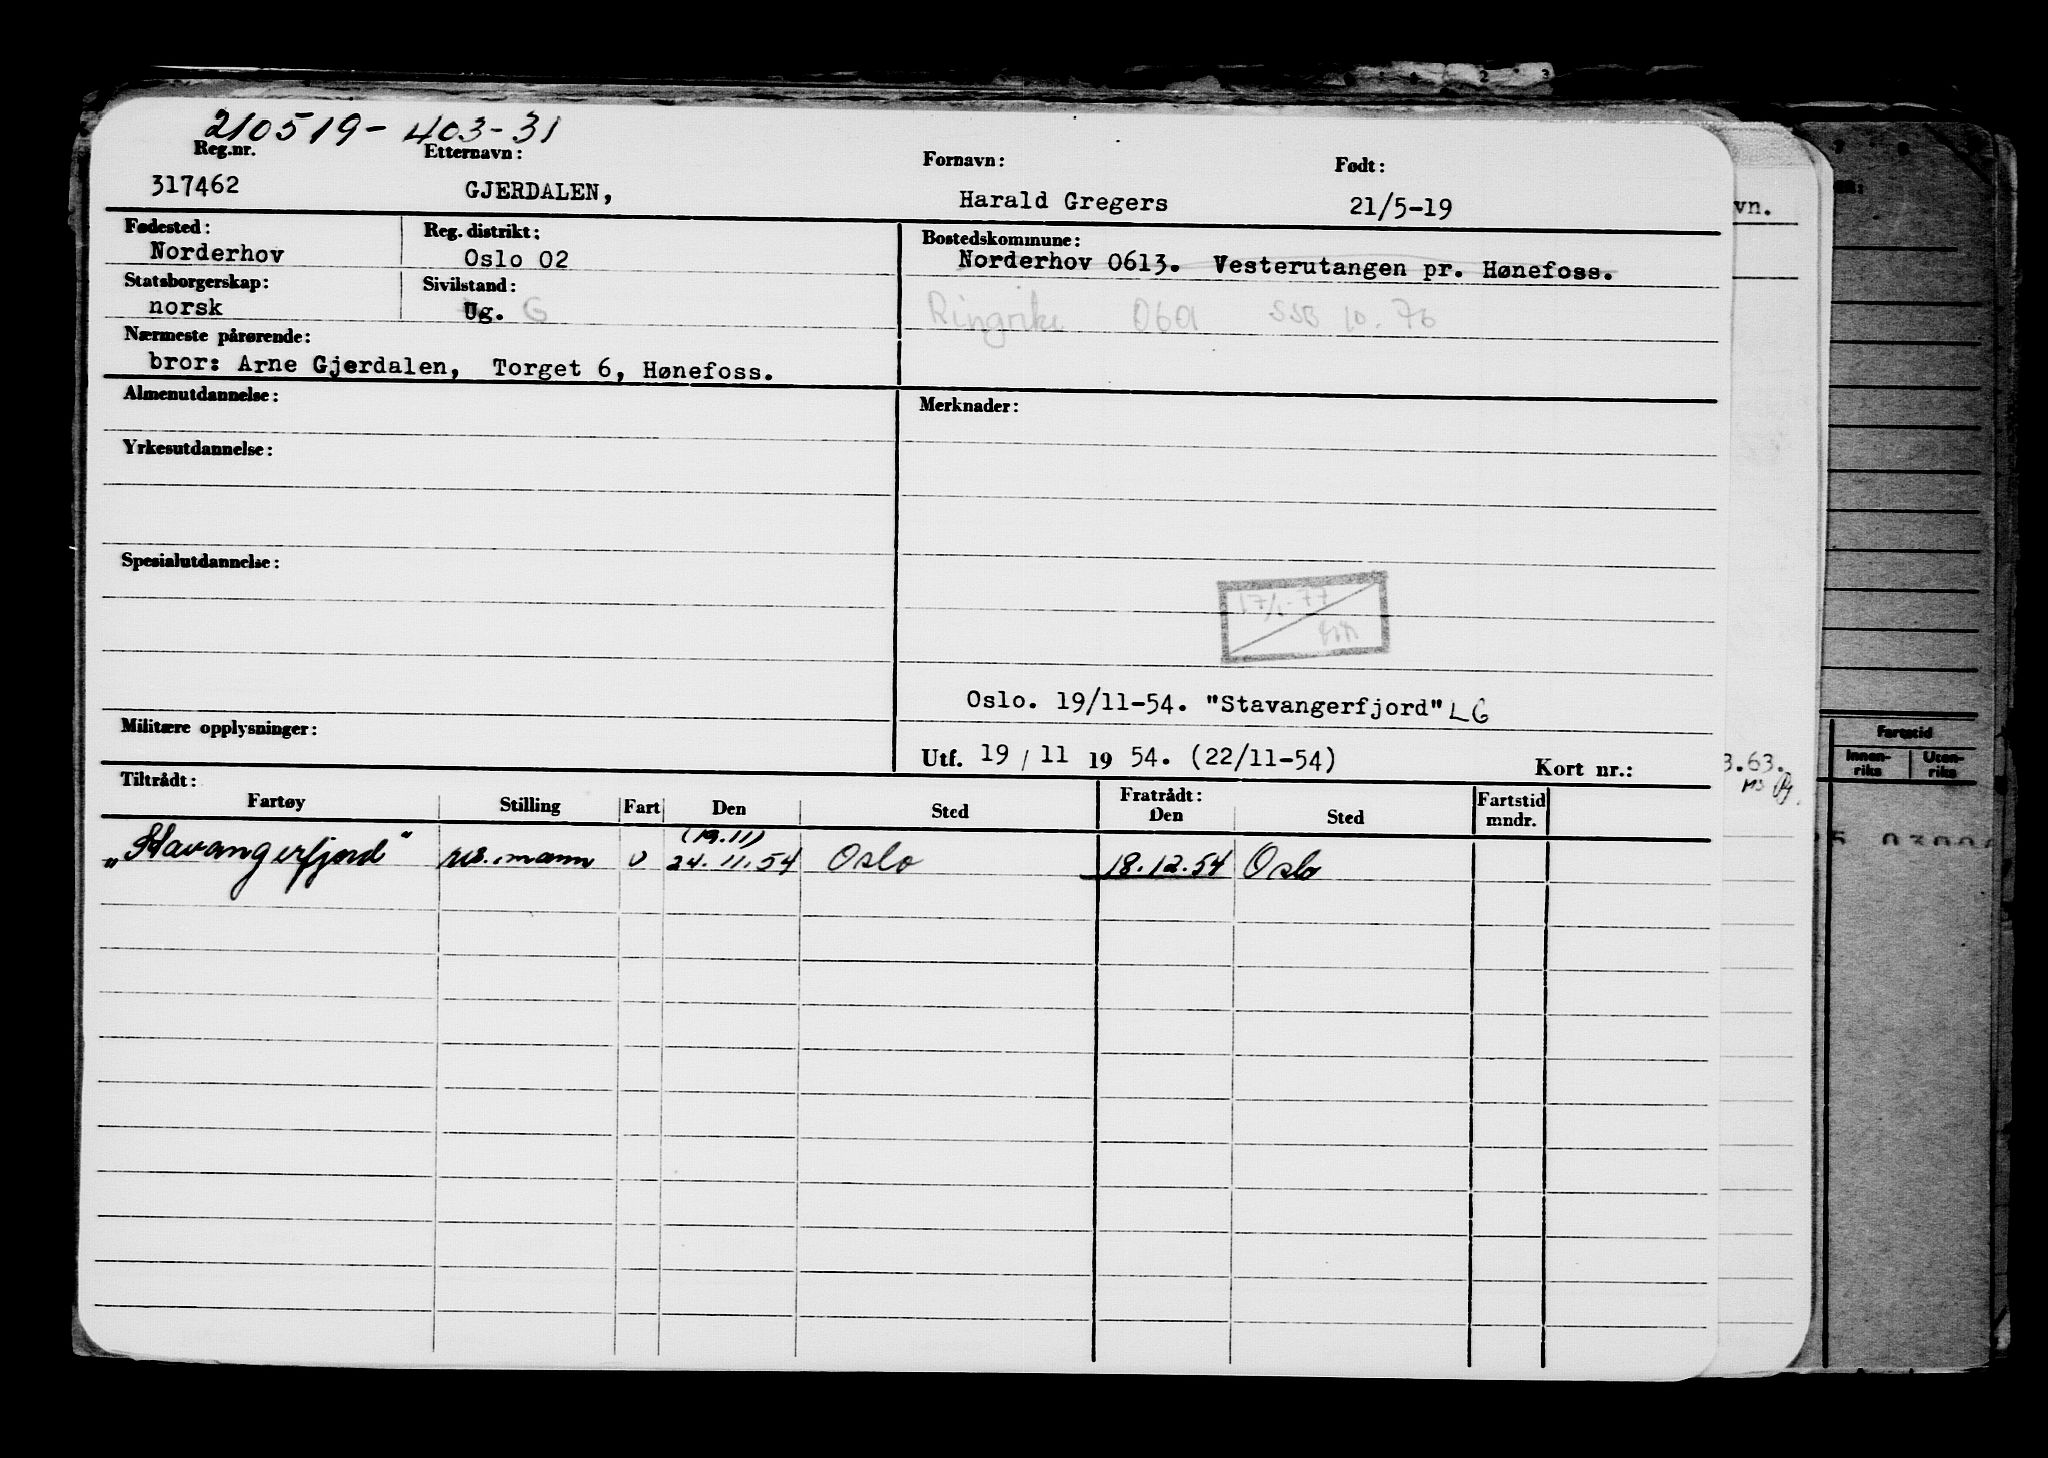 210519-403-31
Reg.nr. Etternavn: Fornavn: Født:
317462 GJERDALEN, Harald Gregers 21/5-19
Fødested: Reg. distrikt: Bostedskommune:
Norderhov Oslo 02 Norderhov 0613. Vesterutangen pr. Hønefoss.
Statsborgerskap: Sivilstand:
norsk Ug. G Ringrike 0601 SSB 10.76
Nærmeste pårørende:
bror: Arne Gjerdalen, Torget 6, Hønefoss.
Almenutdannelse: Merknader:
Yrkesutdannelse:
Spesialutdannelse:
17/1-77
Oslo. 19/11-54. "Stavangerfjord" LG
Militære opplysninger:
Utf. 19/11 19 54. (22/11-54) Kort nr.:
Tiltrådt: Fratrådt:
Fartøy Stilling Fart Den Sted Den Sted Fartstid mndr.
(19.11)
„Stavangerfjord" res.mann U 24.11.54 Oslo 18.12.54 Oslo
vn.
3.63.
Fartstid
Innen-riks Uten-riks